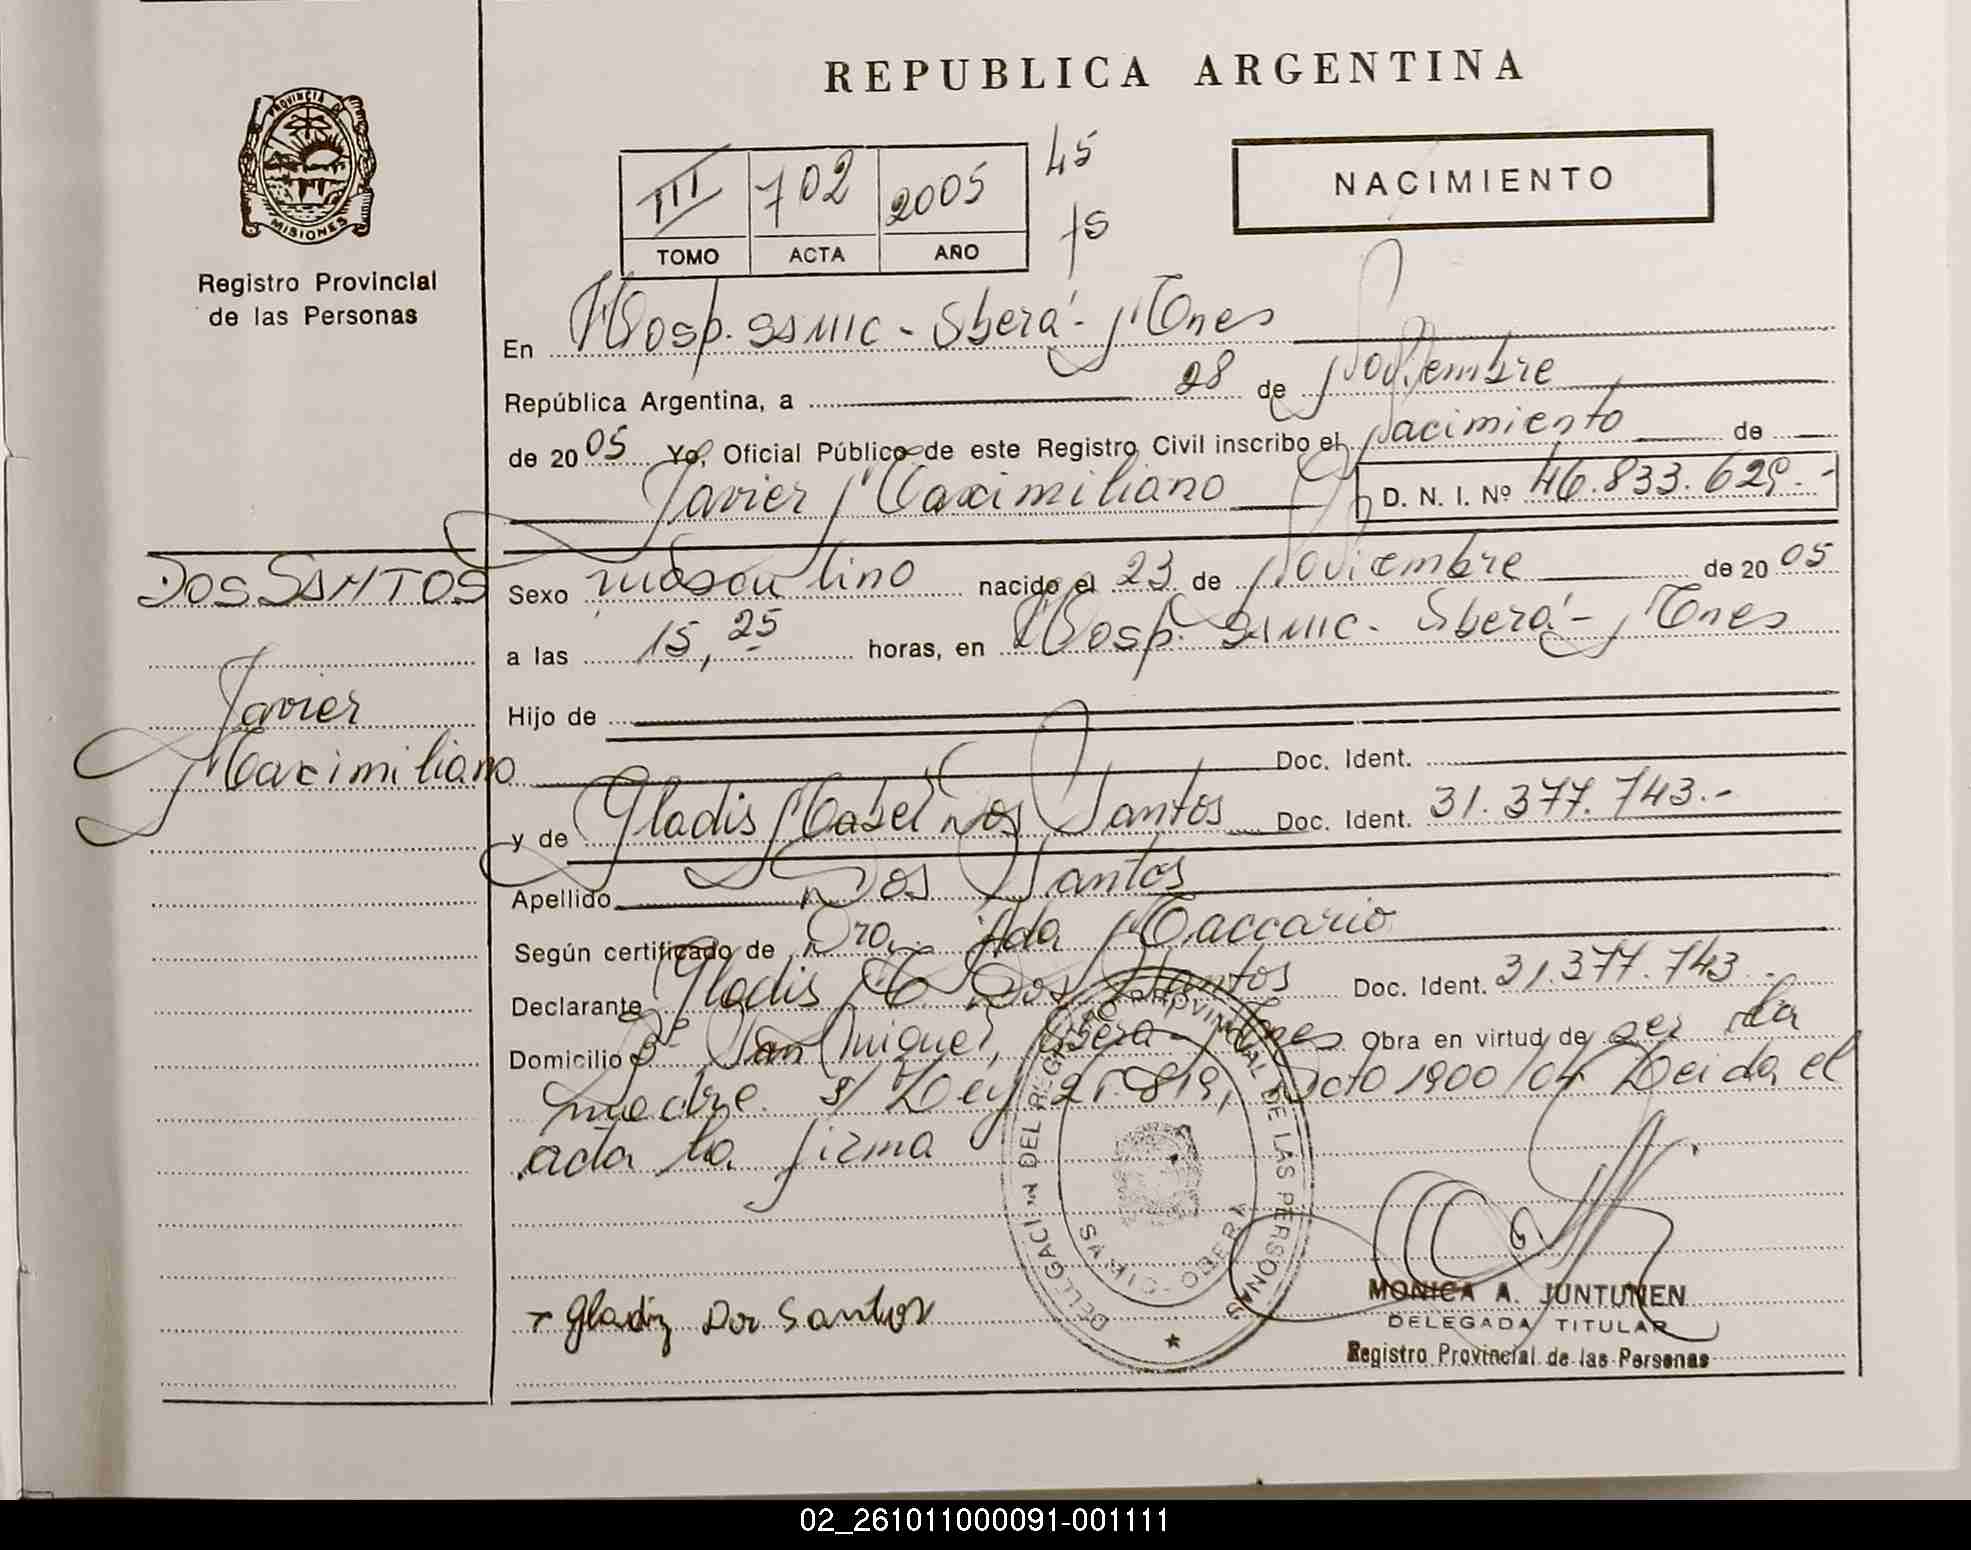 REPUBLICA ARGENTINA
PROVINCIA DE MISIONES
Registro Provincial
de las Personas
III 702 2005 45
TOMO ACTA AÑO 75
NACIMIENTO
En Hosp. SAMIC - Oberá - Mnes
República Argentina, a 28 de Noviembre
de 2005 Yo, Oficial Público de este Registro Civil inscribo el Nacimiento de
Javier Maximiliano D. N. I. Nº 46.833.629.-
DOS SANTOS
Javier
Maximiliano
Sexo masculino nacido el 23 de Noviembre de 2005
a las 15,25 horas, en Hosp. SAMIC - Oberá - Mnes
Hijo de
Doc. Ident.
y de Gladis Mabel Dos Santos Doc. Ident. 31.377.743.-
Apellido Dos Santos
Según certificado de Dra. Ada Maccario
Declarante Gladis M Dos Santos Doc. Ident. 31.377.743.-
Domicilio Bº San Miguel, Oberá - Mnes Obra en virtud de ser la
madre. s/ Ley 25.819, Dcto 1900/04 Leida el
acta la firma
DELEGACION DEL REGISTRO PROVINCIAL DE LAS PERSONAS
OBERA
Gladiz Dos Santos
MONICA A. JUNTUNEN
DELEGADA TITULAR
Registro Provincial de las Personas
02_261011000091-001111